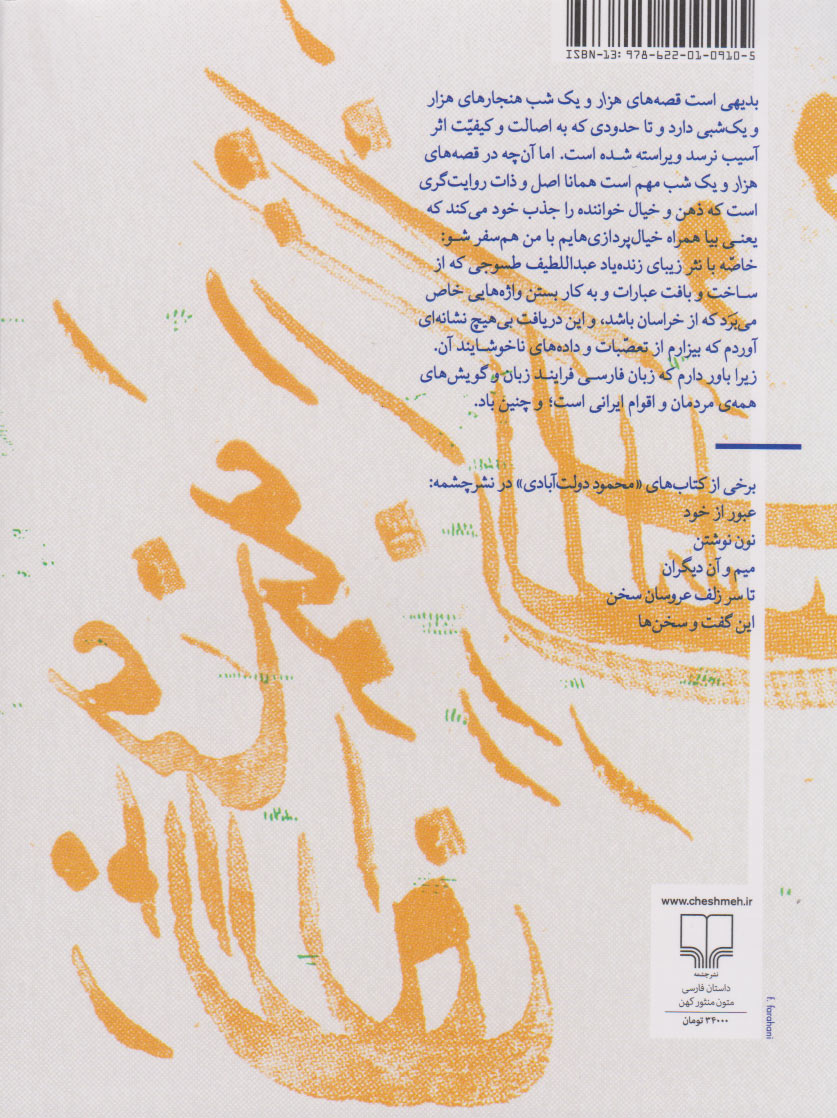 ISBN-13: 978-622-01-0910-5
بدیهی است قصه‌های هزار و یک شب هنجارهای هزار
و یک‌شبی دارد و تا حدودی که به اصالت و کیفیّت اثر
آسیب نرسد ویراسته شده است. اما آن‌چه در قصه‌های
هزار و یک شب مهم است همانا اصل و ذات روایت‌گری
است که ذهن و خیال خواننده را جذب خود می‌کند که
یعنی بیا همراه خیال‌پردازی‌هایم با من هم‌سفر شو:
خاصّه با نثر زیبای زنده‌یاد عبداللطیف طسوجی که از
ساخت و بافت عبارات و به کار بستن واژه‌هایی خاص
می‌بَرَد که از خراسان باشد، و این دریافت بی‌هیچ نشانه‌ای
آوردم که بیزارم از تعصّبات و داده‌های ناخوشایند آن.
زیرا باور دارم که زبان فارسی فرایند زبان و گویش‌های
همه‌ی مردمان و اقوام ایرانی است؛ و چنین باد.
برخی از کتاب‌های «محمود دولت‌آبادی» در نشرچشمه:
عبور از خود
نون نوشتن
میم و آن دیگران
تا سر زلف عروسان سخن
این گفت و سخن‌ها
www.cheshmeh.ir
نشرچشمه
داستان فارسی
متون منثور کهن
۳۴۰۰۰ تومان
f. farahani